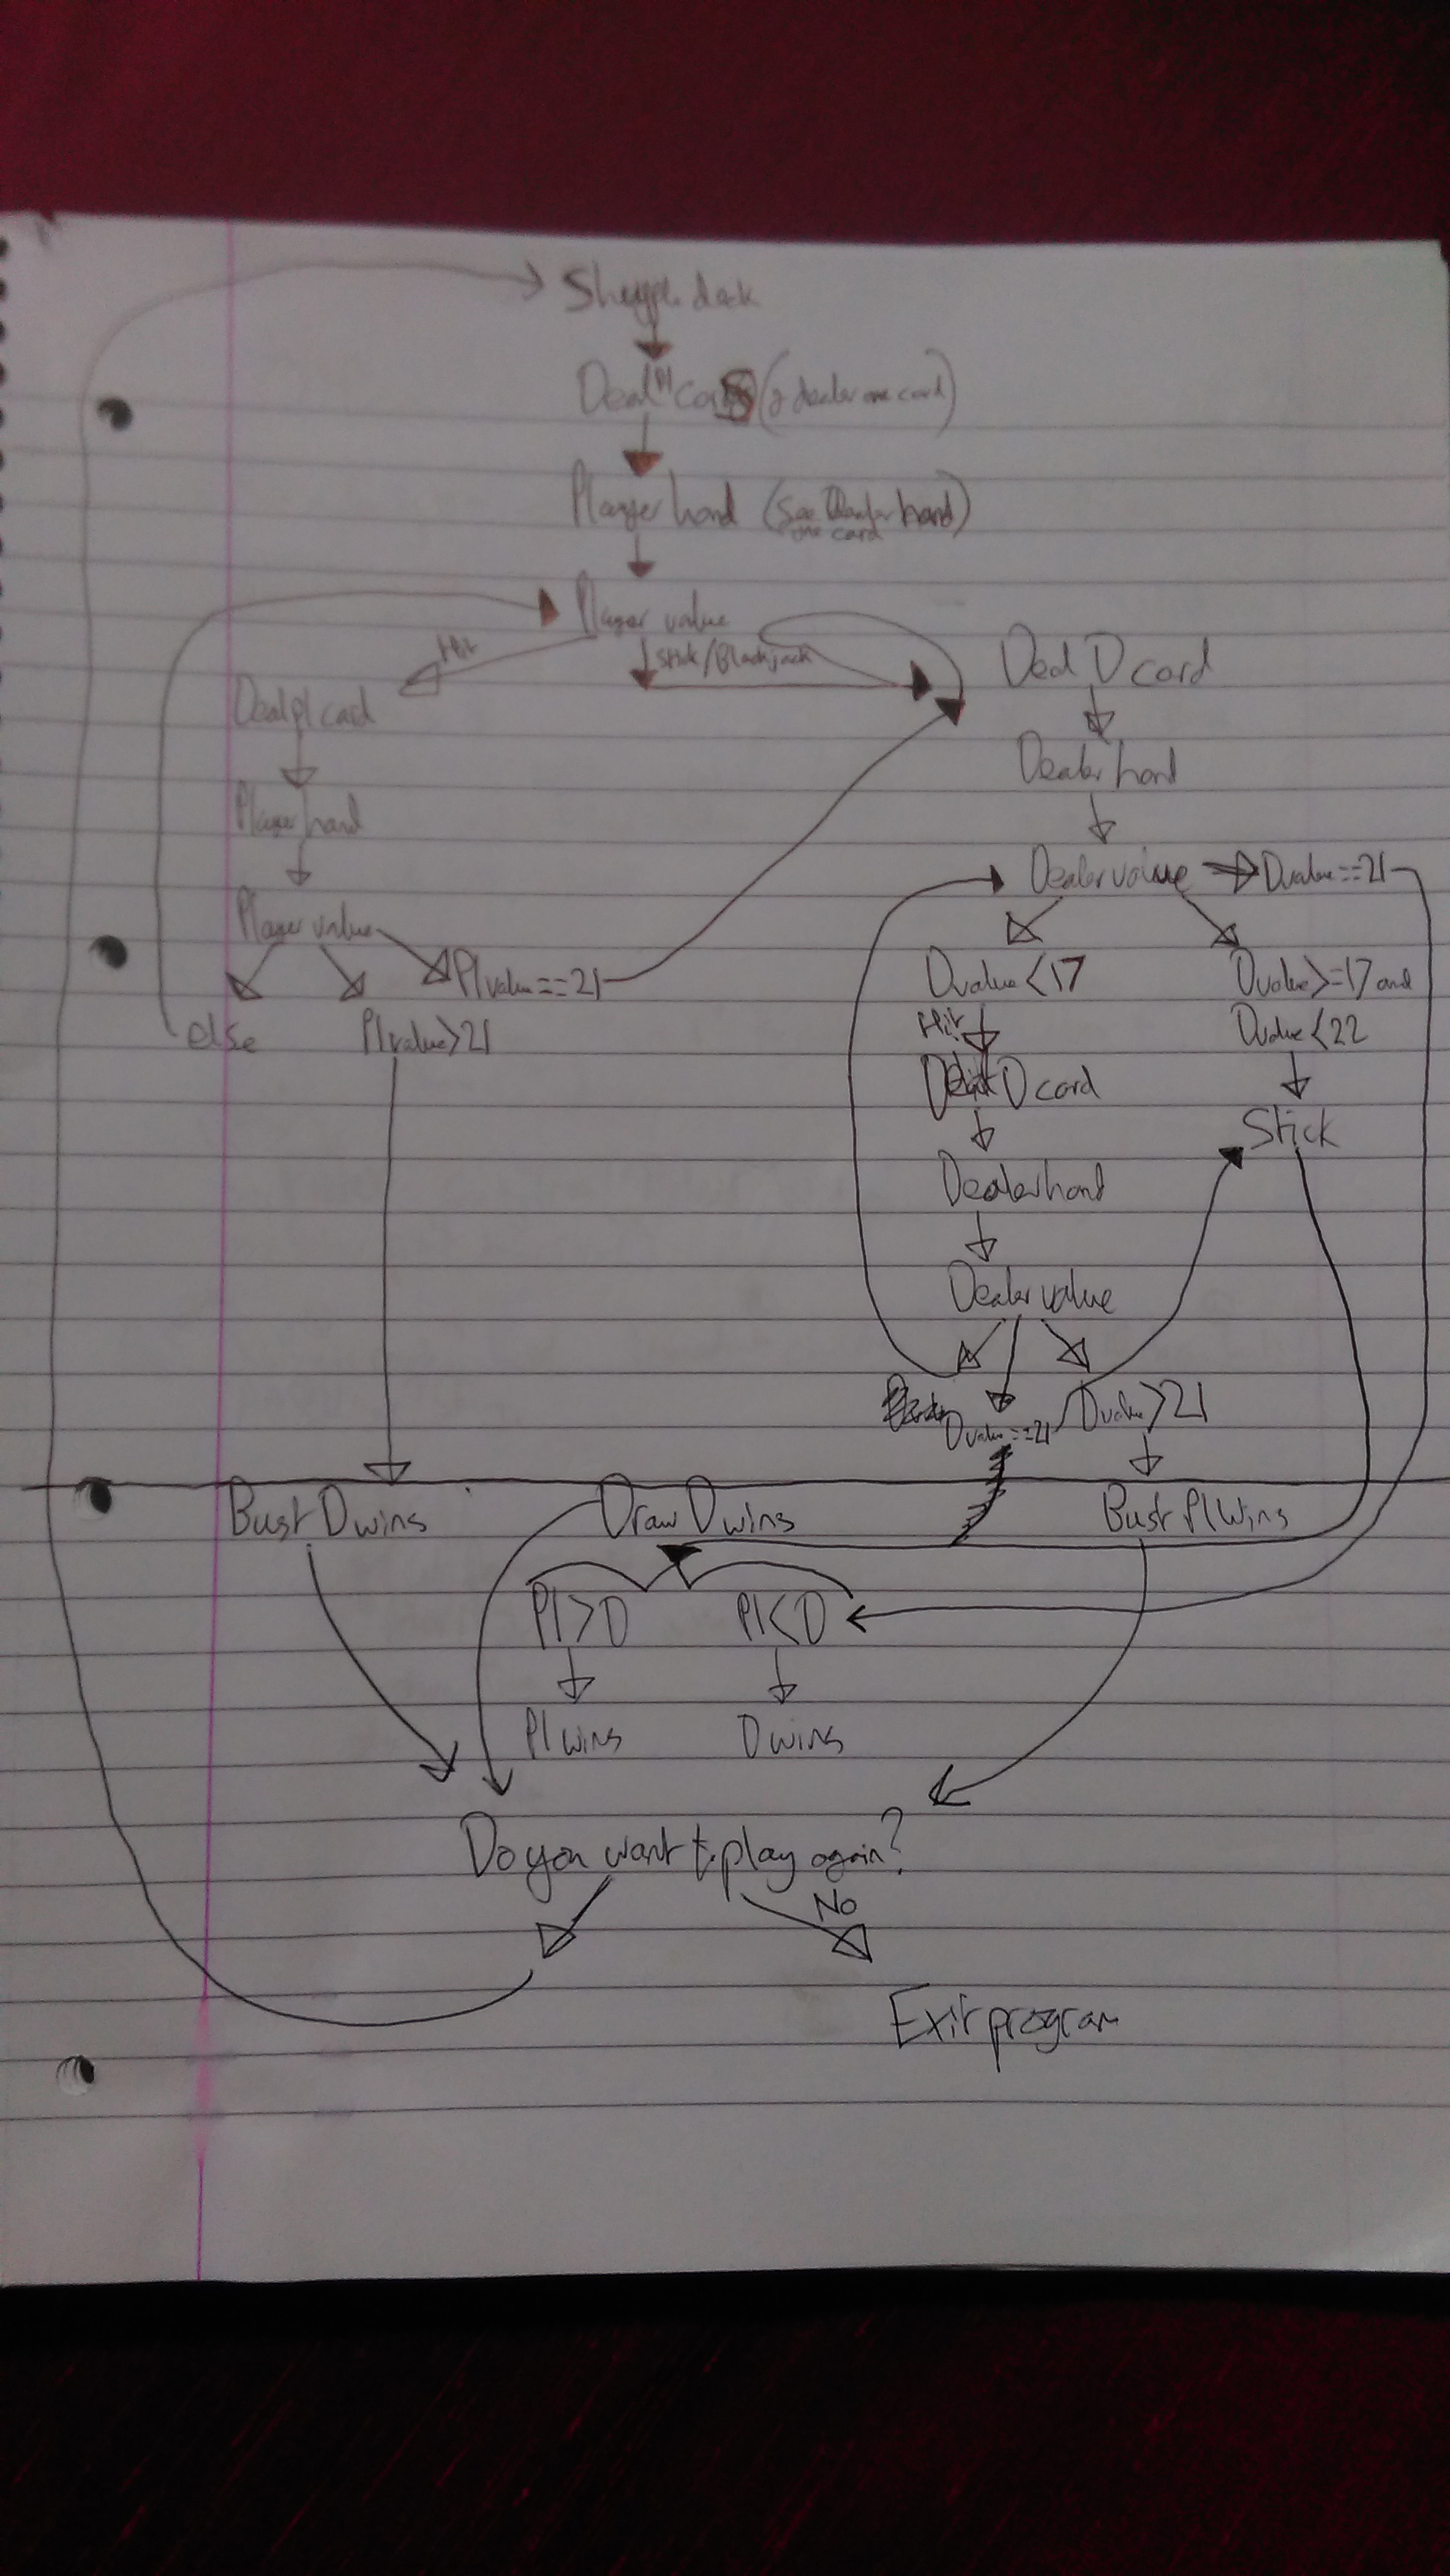 Shuffle deck
Deal Pl cards (& dealer one card)
Player hand (See Dealer hand)
one card
Player value
Hit
Stick/Blackjack
Deal D card
Deal pl card
Dealer hand
Player hand
Dealer value
Dvalue==21
Player value
Plvalue==21
Dvalue<17
Dvalue>=17 and
else
Plvalue>21
Hit
Dvalue<22
D card
Stick
Dealer hand
Dealer value
Dvalue==21
Dvalue>21
Bust D wins
Draw D wins
Bust Pl Wins
Pl>D
Pl<D
Pl wins
D wins
Do you want to play again?
No
Exit program